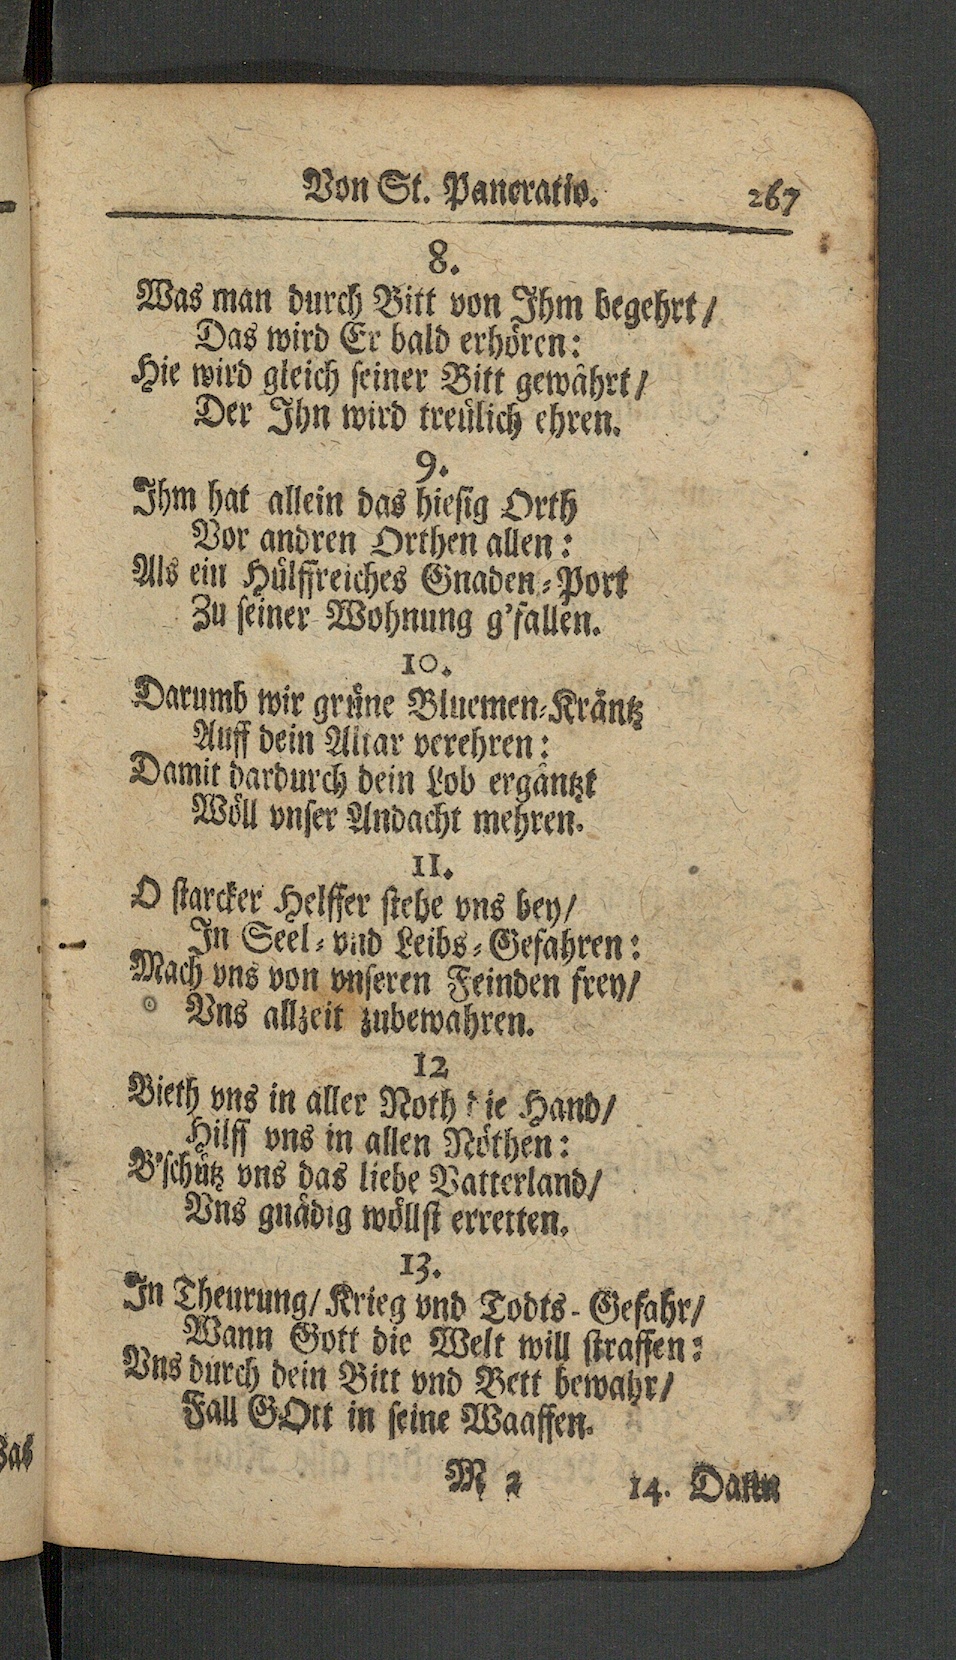 Von St. Pancratio. 267
8.
Was man durch Bitt von Ihm begehrt/
Das wird Er bald erhören:
Hie wird gleich seiner Bitt gewährt/
Der Ihn wird treülich ehren.
9.
Ihm hat allein das hiesig Orth
Vor andren Orthen allen:
Als ein Hülffreiches Gnaden-Port
Zu seiner Wohnung g'fallen.
10.
Darumb wir grüne Bluemen-Kräntz
Auff dein Altar verehren:
Damit dardurch dein Lob ergäntzt
Wöll vnser Andacht mehren.
11.
O starcker Helffer stehe vns bey/
In Seel- vnd Leibs-Gefahren:
Mach vns von vnseren Feinden frey/
Vns allzeit zubewahren.
12
Bieth vns in aller Noth die Hand/
Hilff vns in allen Nöthen:
B'schütz vns das liebe Vatterland/
Vns gnädig wöllst erretten.
13.
In Theurung/ Krieg vnd Todts-Gefahr/
Wann Gott die Welt will straffen:
Vns durch dein Bitt vnd Bett bewahr/
Fall GOtt in seine Waaffen.
M 2 14. Dann